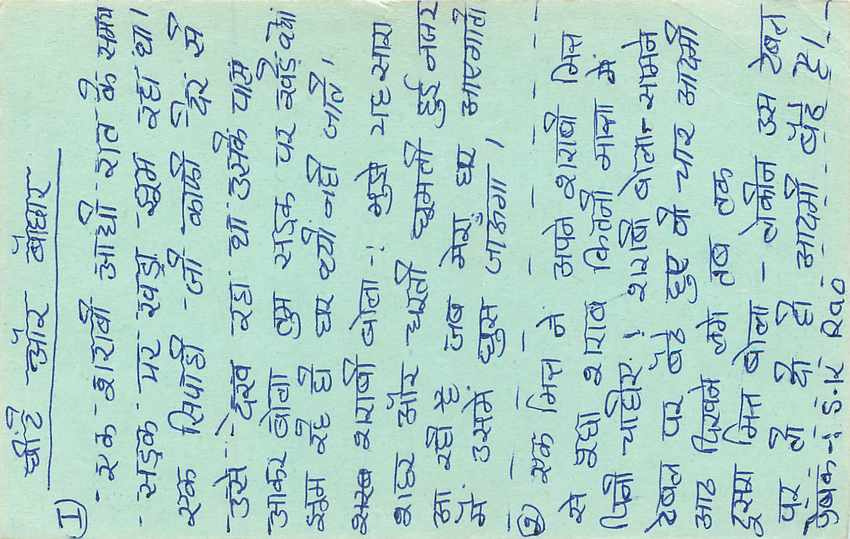 छींटे और बौछार
I) एक शराबी आधी रात के समय
सड़क पर खड़ा झूम रहा था।
एक सिपाही जी काफी देर से
उसे देख रहा था उसके पास
आकर बोला तुम सड़क पर खड़े क्यों
झुम रहे हो घर क्यों नही जाते।
शराबी बोला :- मुझे यह सारा
शहर और धरती घुमती हुई नजर
आ रही है जब मेरा घर आएगातो
में उसमे घुस जाऊगा।
२) एक मित्र ने अपने शराबी मित्र
से पुछा शराब कितनी मात्रा में
पिनी चाहिए। शराबी बोला- सामने
टेबल पर बैठे हुए वो चार आदमी
आठ दिखने लगे तब तक
दुसरा मित्र बोला - लेकीन उस टेबल
पर तो दो ही आदमी बैठे है।
प्रेषक -: S.K Rao